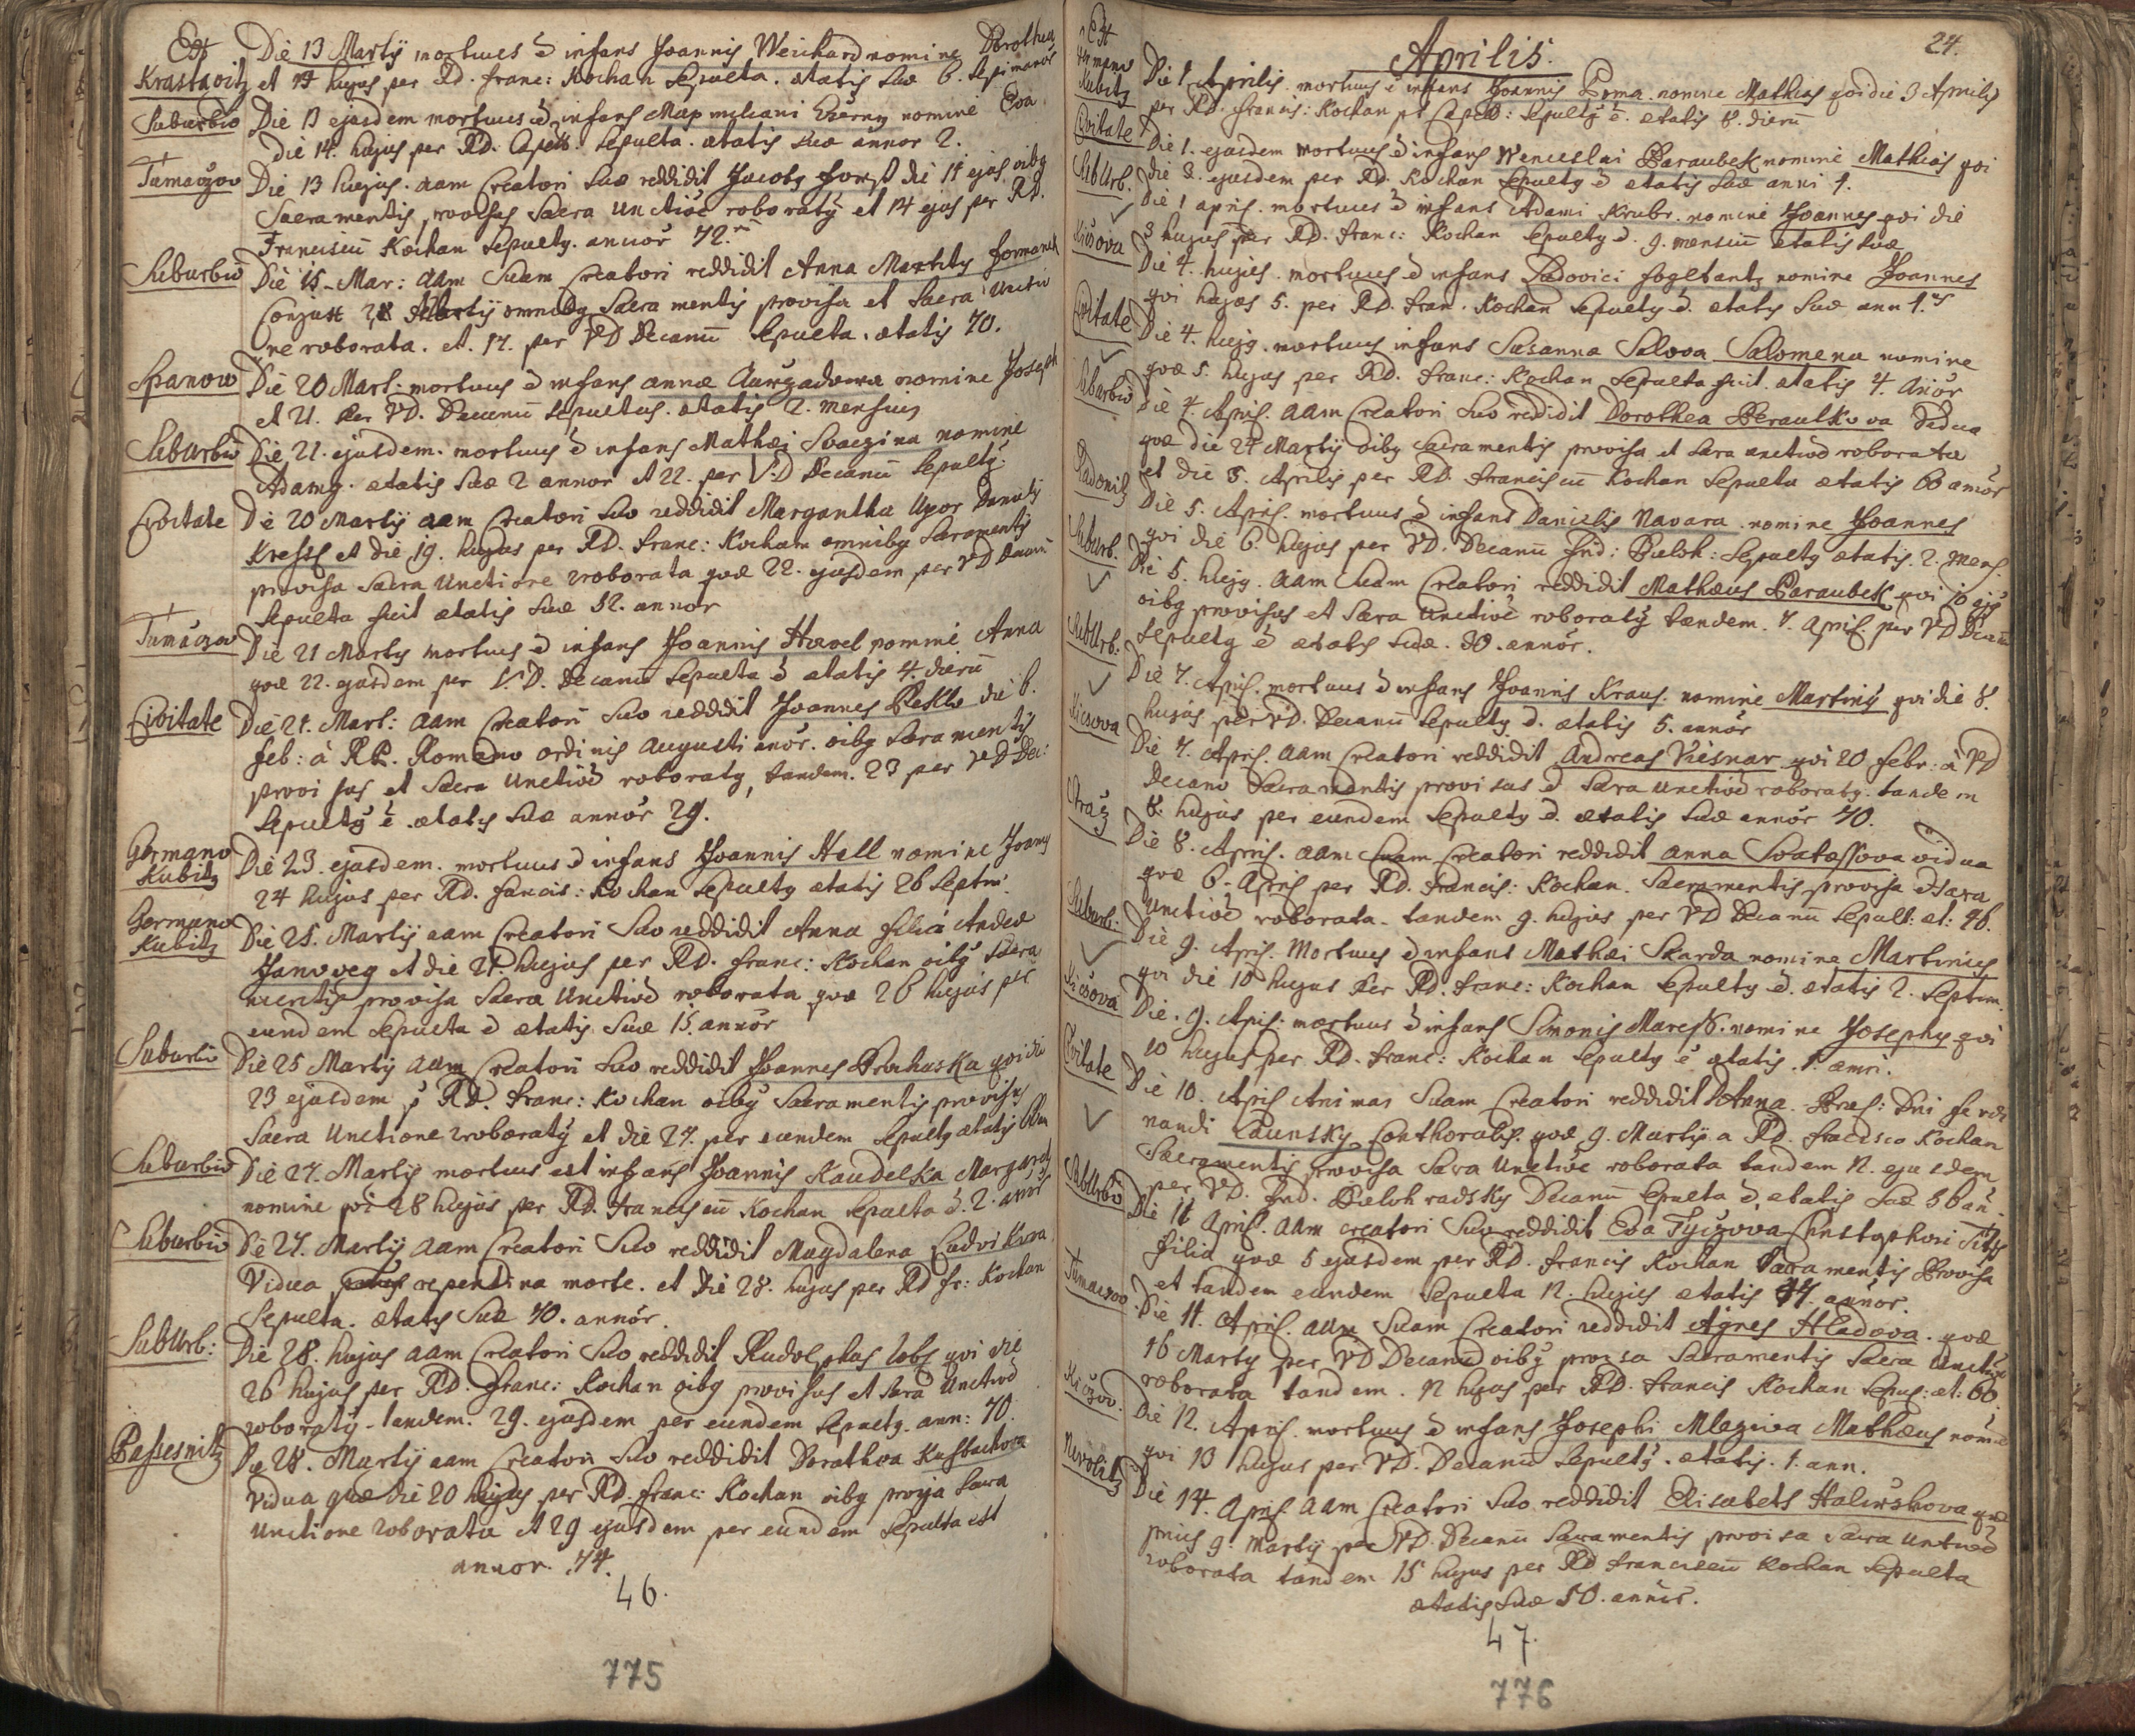 Ex Die 13 Martij mortuus ē infans Joannis Weichard nomine Dorothea
Krastavitz et 14 hujus per RD. Franc: Kochan Sepulta. ætatis suæ 6. Septimanor
Suburbio Die 13 ejusdem mortuus ē infans Maxmiliani Czerny nomine Eva
die 14. hujus per RD. Capell. Sepulta. ætatis suæ annor 2.
Tumaczov Die 13 hujus. aam Creatori suo reddidit Jacobg die 11 ejus oibg
Sacramentis provisus Sacra Unctiōe roboratg et 14 ejus per RD.
Franciscū Kochan Sepultg. annor 72.
Suburbio Die 15. Mar: aam Suam Creatori reddidit Anna Formanek
Conjux Martij omnibg Sacramentis provisa et Sacra Unctio
ne roborata. et. 17. per VD Decanū Sepulta. ætatis 70.
Spanow Die 20 Mart: mortuus ē infans annæ nomine Joseph
et 21. per VD. Decanū Sepultus. ætatis 2. mensiū
Suburbio Die 21. ejusdem. mortuus ē infans Mathæi Svaczina nomine
Adamg. ætatis suæ 2 annor et 22. per V.D Decanū Sepultg.
Civitate Die 20 Martij aam Creatori suo reddidit Margaritha Uxor Danielis
Kressl et die 19. hujus per RD. Franc: Kochan omnibg Sacramentis
provisa Sacra Unctione roborata quæ 22. ejusdem per VD Decanū
Sepulta fuit ætatis suæ 52. annor
Tumaczov Die 21 Martij mortuus ē infans Joannis Havel nomine Anna
quæ 22. ejusdem per V.D. Decanū Sepulta ē ætatis 4. dierū
Civitate Die 21. Mart: aam Creatori suo reddidit Joannes Peklo die 6.
feb: à RP. Romano ordinis Augustianor. oibg Sacramentis
provisus et Sacra Unctiōe roboratg, tandem. 23 per VD Dec:
Sepultg ē ætatis suæ annor 29.
Germano
Kubitz Die 23. ejusdem. mortuus ē infans Joannis Hell nomine Joanes
24 hujus per RD. Francis: Kochan Sepultg ætatis 26 Septim.
Germano
Kubitz Die 25. Martij aam Creatori suo reddidit Anna filia Andreæ
Janoveg et die 21. hujus per RD. Franc: Kochan oibg Sacra
mentis provisa Sacra Unctiōe roborata quæ 26 hujus per
eundem Sepulta ē ætatis suæ 15. annor
Suburbio Die 25 Martij aam Creatori suo reddidit Joannes Prochaska qvi die
23 ejusdem p RD. Franc: Kochan oibg Sacramentis provisus
Sacra Unctione roboratg et die 27. per eundem Sepultg ætatis
Suburbio Die 27. Martij mortuus est infans Joannis Kaudelka Margareta
nomine qvi 28 hujus per RD. Franciscū Kochan Sepulta ē. 2. annor
Suburbio Die 27. Martij aam Creatori suo reddidit Magdalena Ludvikova
Vidua repentina morte. et die 28. hujus per RD Fr: Kochan
Sepulta. ætatis suæ 70. annor.
Suburb: Die 28. hujus aam Creatori suo reddidit Rudolphus Lobs qvi die
26 hujus per RD. Franc: Kochan oibg provisus et Sacra Unctiōe
roboratg. tandem. 29. ejusdem per eundem Sepultg. ann: 70.
Passesnitz Die 28. Martij aam Creatori suo reddidit Dorothea
Vidua quæ die 20 hujus per RD. Franc: Kochan oibg provisa Sacra
Unctione roborata et 29 ejusdem per eundem Sepulta est
annor. 74.
46.
775
24.
Aprilis.
Ex
Germano
Kubitz Die 1. Aprilis mortuus ē infans Joannis nomine Mathias qvi die 3 Aprilis
per RD. Francis: Kochan pt Capell: Sepultg ē. ætatis 8. dierū
Civitate Die 1. ejusdem mortuus ē infans Wenceslai Paraubek nomine Mathias qvi
die 3. ejusdem per RD. Kochan Sepultg ē ætatis suæ anni 1.
Suburb. Die 1 april. mortuus ē infans Adami Krubr. nomine Joannes qvi die
3 hujus per RD. Franc: Kochan Sepultg ē. 9. mensiū ætatis suæ
Kiczova Die 4. hujus. mortuus ē infans Ludovici nomine Joannes
qvi hujus 5. per RD. Fran. Kochan Sepultg ē. ætatis suæ ann 1.
Civitate Die 4. hujg. mortuus infans Susanna Salomena nomine
quæ 5. hujus per RD. Franc: Kochan Sepulta fuit. ætatis 4. anor
Suburbio Die 4. April. aam Creatori suo reddidit Dorothea Beraulkova Vidua
quæ die 24 Martij oibg Sacramentis provisa et Sacra unctiōe roborata
et die 5. Aprilis per RD. Franciscū Kochan Sepulta ætatis 60 anor
Radonitz Die 5. April. mortuus ē infans Danielis Navara. nomine Joannes
qvi die 6. hujus per VD. Decanū Sepultg ætatis. 2. mens.
Suburb. Die 5. hujg. aam Suam Creatori reddidit Mathæus Paraubek qvi
oibg provisus et Sacra Unctiōe roboratg tandem. 7. April. per VD Decanū
Sepultg ē ætatis suæ. 30. annor.
Suburb: Die 7. April. mortuus ē infans Joannis Kraus: nomine Marting qvi die 8.
hujus per VD. Decanū Sepultg ē. ætatis 5. annor
Kiczova Die 7. April. aam Creatori reddidit Andreas qvi 20 Febr: à VD
Decano Sacramentis provisus ē Sacra Unctiōe roboratg. tandem
8. hujus per eundem Sepultg ē. ætatis suæ annor 70.
Straz Die 8. April. aam Suam Creatori reddidit anna Svatossova vidua
quæ 6. April per RD. Francis: Kochan. Sacramentis provisa et Sacra
Unctiōe roborata. tandem 9. hujus per VD Decanū Sepult: æt: 46.
Suburb: Die 9. April. Mortuus ē infans Mathæi Skarda nomine Martinus
qvi die 10 hujus per RD. Franc: Kochan Sepultg ē. ætatis 2. Septim.
Kiczova Die. 9. April: mortuus ē infans Simonis nomine Josephg qvi
10 hujus per RD. Franc: Kochan Sepultg ē ætatis. 1. anni.
Civitate Die 10. April Animam Suam Creatori reddidit Anna. Dni Ferdi
nandi quæ 9. Martij a RD. Francisco Kochan
Sacramentis provisa Sacra Unctiōe roborata tandem 12. ejusdem
per VD. Bielohradsky Decanū Sepulta ē ætatis suæ 56 an.
Suburbio Die 11 April. aam creatori suo reddidit Eva Tyczova Christophori
filia quæ 5 ejusdem per RD. Francis Kochan Sacramentis Provisa
et tandem eundem Sepulta 12. hujus ætatis annor.
Tumaczov. Die 11. April. aam Suam Creatori reddidit Agnes Hladova. quæ
16 Martij per VD Decanū oibg provisa Sacramentis Sacra Unctiōe
roborata tandem. 12 hujus per RD. Francis Kochan Sepul: æt: 60.
Kiczov. Die 12. April. mortuus ē infans Josephi Mleziva Mathæus nomine
qvi 13 hujus per VD. Decanū Sepultg. ætatis. 1. ann.
Nevolitz Die 14. April aam Creatori suo reddidit Elisabeth quæ
prius 9. Martij per VD. Decanū Sacramentis provisa Sacra Unctiōe
roborata tandem 15 hujus per RD Franciscū Kochan Sepulta
ætatis suæ 50. annor.
47.
776